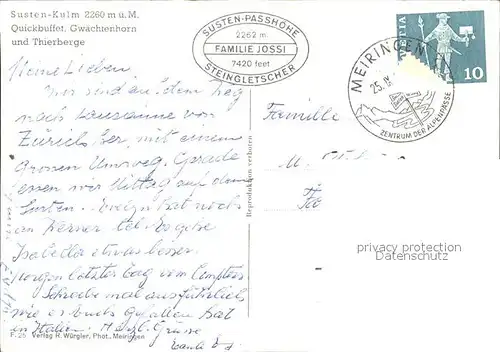 Susten-Kulm 2260 m ü. M.
Quickbuffet, Gwächtenhorn
und Thierberge
SUSTEN-PASSHÖHE
2262 m.
FAMILIE JOSSI
7420 feet
STEINGLETSCHER
HELVETIA
10
MEIRINGEN
25. IX
ZENTRUM DER ALPENPÄSSE
Meine Lieben
Wir sind auf dem Weg
nach Lausanne von
Zürich her, mit einem
Grossen Umweg. Gerade
essen wir Mittag auf dem
Susten. Evelyn hat noch
an Werner tel. Es gehe
Isabella etwas besser.
Morgen letzter Tag vom Comptoir
Schreibe mal ausführlich
wie es euch gefallen hat
in Italien. Herzl. Grüsse
Familie
Reproduktion verboten
privacy protection watermark
Datenschutz
F. 25 Verlag H. Würgler, Phot., Meiringen